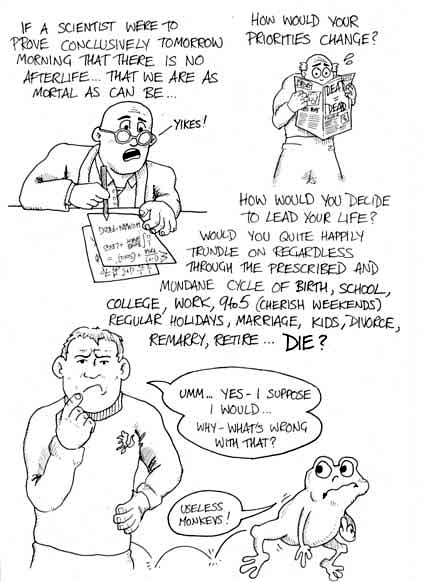 IF A SCIENTIST WERE TO
PROVE CONCLUSIVELY TOMORROW
MORNING THAT THERE IS NO
AFTERLIFE... THAT WE ARE AS
MORTAL AS CAN BE...
YIKES!
HOW WOULD YOUR
PRIORITIES CHANGE?
DEAD
=
DEAD
HOW WOULD YOU DECIDE
TO LEAD YOUR LIFE?
WOULD YOU QUITE HAPPILY
TRUNDLE ON REGARDLESS
THROUGH THE PRESCRIBED AND
MUNDANE CYCLE OF BIRTH, SCHOOL,
COLLEGE, WORK, 9to5 (CHERISH WEEKENDS)
REGULAR HOLIDAYS, MARRIAGE, KIDS, DIVORCE,
REMARRY, RETIRE... DIE?
UMM... YES - I SUPPOSE
I WOULD...
WHY - WHAT'S WRONG
WITH THAT?
USELESS
MONKEYS!